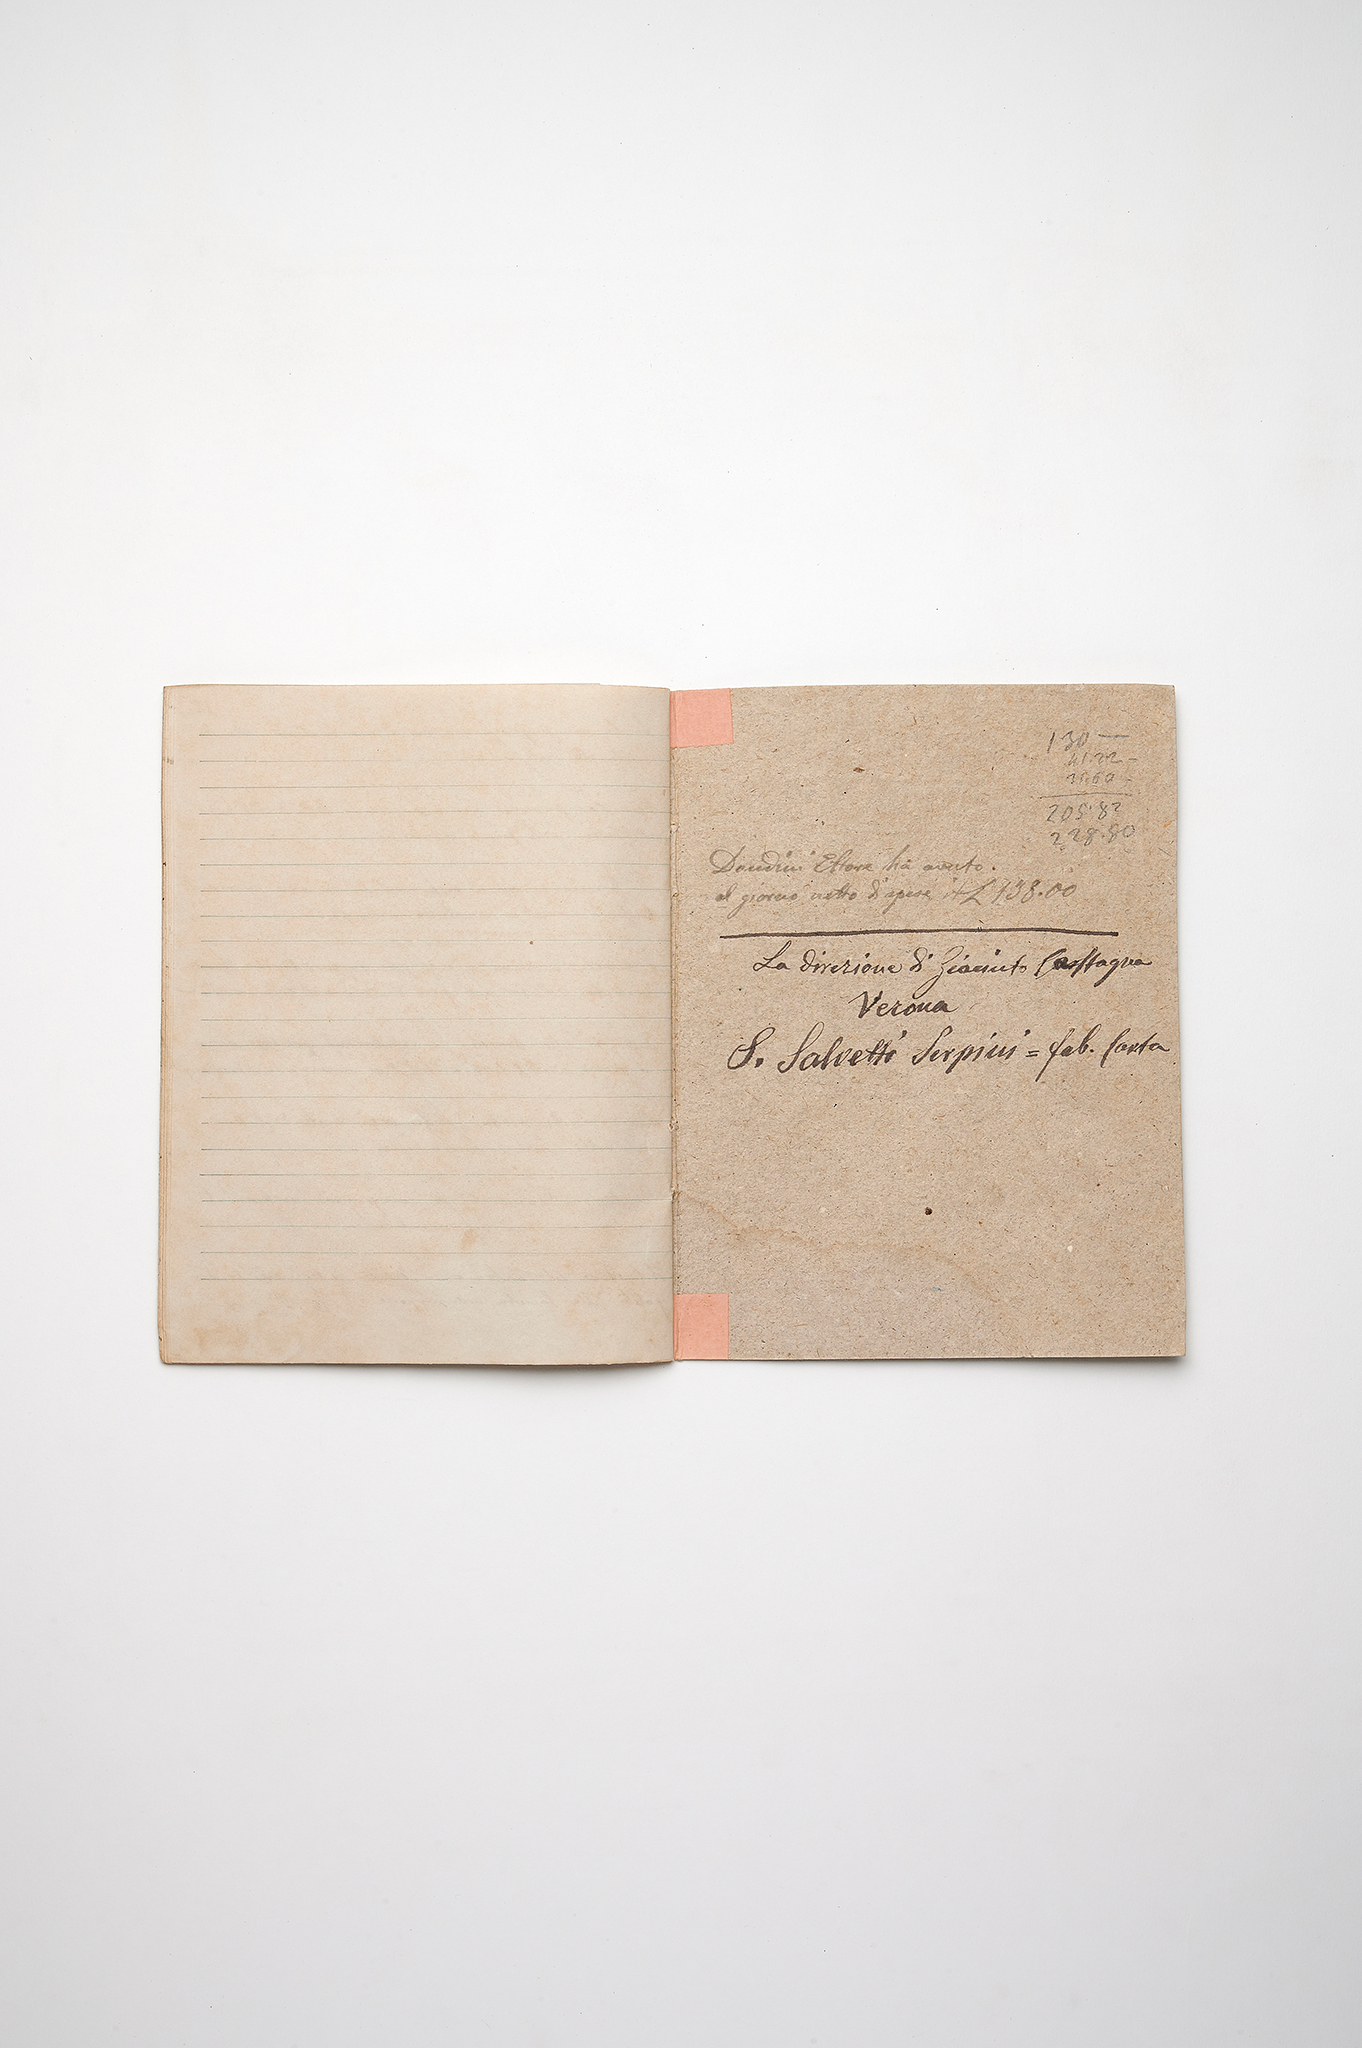 130 —
41.22 -
205.82
228.80
Dondini Ettore ha avuto.
al giorno netto di spese £ 138.00
La direzione di Giacinto Castagna
Verona
S. Salvetti Serpini = fab. Carta